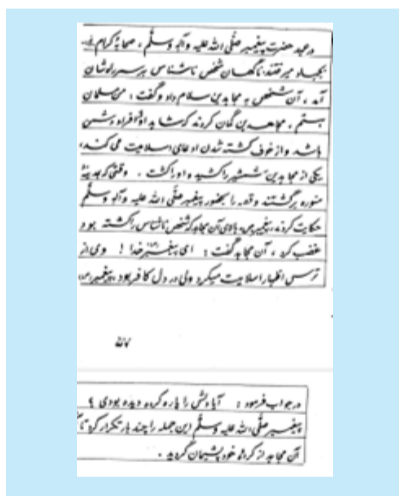 در عهد حضرت پیغمبر صلّی الله علیه و آلہ وسلّم، صحابۀ کرام به
بجهاد میرفتند ناگهان شخص ناشناس بر سر راه‌شان
آمد، آن شخص به مجاهدین سلام داد و گفت: من مسلمان
هستم، مجاهدین گمان کردند که شاید او از افراد دشمن
باشد و از خوف کشته شدن ادعای اسلامیت می کند،
یکی از مجاهدین شمشیر را کشید و او را کشت. وقتی که بمدینۀ
منوره برگشتند و قصه را بحضور پیغمبر صلّی الله علیه و آلہ وسلّم
حکایت کردند، پیغمبر ص، بالای آن مجاهد که شخص ناشناس را کشته بود
غضب کرد، آن مجاهد گفت: ای پیغمبر خدا! وی از
ترس اظهار اسلامیت میکرد ولی در دل کافر بود، پیغمبر ص،
در جواب فرمود: آیا دلش را پاره کرده دیده بودی؟
پیغمبر صلّی الله علیه وسلّم این جمله را چند بار تکرار کرد تا که
آن مجاهد از کردۀ خود پشیمان گردید.